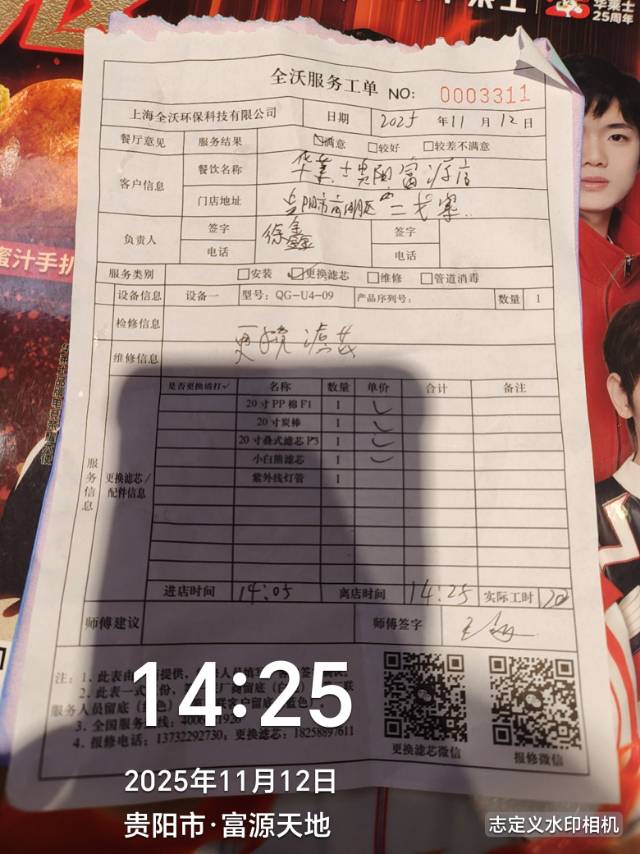 华莱士
25周年
蜜汁手扒
全沃服务工单 NO: 0003311
上海全沃环保科技有限公司 日期 2025 年 11 月 12 日
餐厅意见 服务结果 ☑满意 □较好 □较差不满意
客户信息 餐饮名称 华莱士贵阳富源店
门店地址 贵阳市南明区二戈寨
负责人 签字 徐鑫 签字
电话 电话
服务类别 □安装 ☑更换滤芯 □维修 □管道消毒
设备信息 设备一 型号: QG-U4-09 产品序列号: 数量 1
检修信息
更换滤芯
维修信息
服务信息
更换滤芯/配件信息
是否更换请打✓ 名称 数量 单价 合计 备注
20寸PP棉F1 1 ✓
20寸炭棒 1 ✓
20寸叠式滤芯P5 1 ✓
小白熊滤芯 1 ✓
紫外线灯管 1
进店时间 14:05 离店时间 14:25 实际工时 20
师傅建议 师傅签字
注: 1、此表由
2、此表一式
服务人员留底
3、全国服务
4、报修电话: 13732292730, 更换滤芯: 18258897611
更换滤芯微信 报修微信
14:25
2025年11月12日
贵阳市·富源天地
志定义水印相机